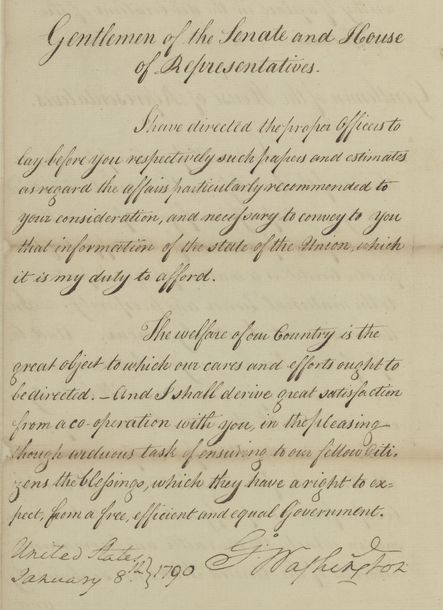 Gentlemen of the Senate and House
of Representatives.
I have directed the proper Officers to
lay before you respectively such papers and estimates
as regard the affairs particularly recommended to
your consideration, and necessary to convey to you
that information of the state of the Union, which
it is my duty to afford.
The welfare of our Country is the
great object to which our cares and efforts ought to
be directed. – And I shall derive great satisfaction
from a co-operation with you, in the pleasing
though arduous task of ensuring to our fellow Citi-
zens the blessings, which they have a right to ex-
pect, from a free, efficient and equal Government.
United States
January 8th. } 1790
Go Washington